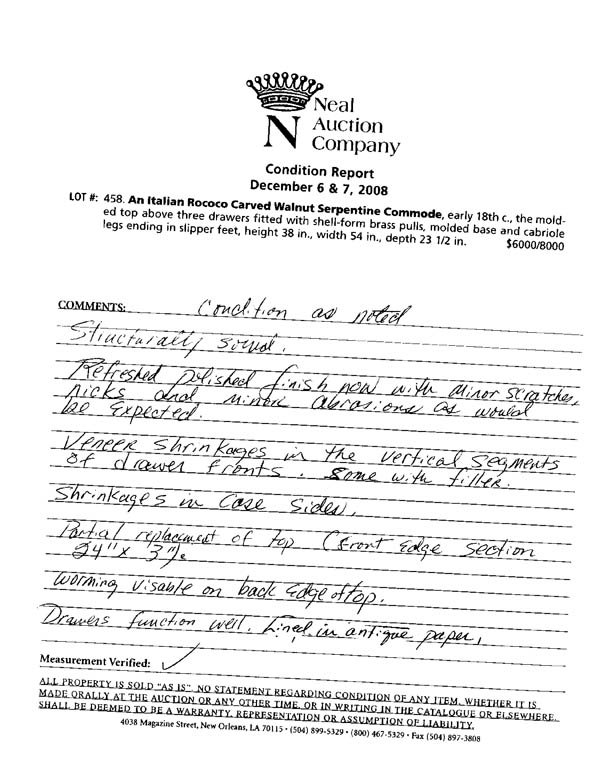 Neal
Auction
Company
N
Condition Report
December 6 & 7, 2008
LOT #: 458. An Italian Rococo Carved Walnut Serpentine Commode, early 18th c., the mold-
ed top above three drawers fitted with shell-form brass pulls, molded base and cabriole
legs ending in slipper feet, height 38 in., width 54 in., depth 23 1/2 in. $6000/8000
COMMENTS: Condition as noted
Structurally sound.
Refreshed polished finish now with minor scratches,
nicks and minor abrasions as would
be expected.
Veneer shrinkages in the vertical segments
of drawer fronts. Some with filler.
Shrinkages in case sides.
Partial replacement of top (front edge section
24" x 3").
Worming visable on back edge of top.
Drawers function well. Lined in antique paper,
Measurement Verified: ✓
ALL PROPERTY IS SOLD "AS IS". NO STATEMENT REGARDING CONDITION OF ANY ITEM, WHETHER IT IS
MADE ORALLY AT THE AUCTION OR ANY OTHER TIME, OR IN WRITING IN THE CATALOGUE OR ELSEWHERE,
SHALL BE DEEMED TO BE A WARRANTY, REPRESENTATION OR ASSUMPTION OF LIABILITY.
4038 Magazine Street, New Orleans, LA 70115 • (504) 899-5329 • (800) 467-5329 • Fax (504) 897-3808